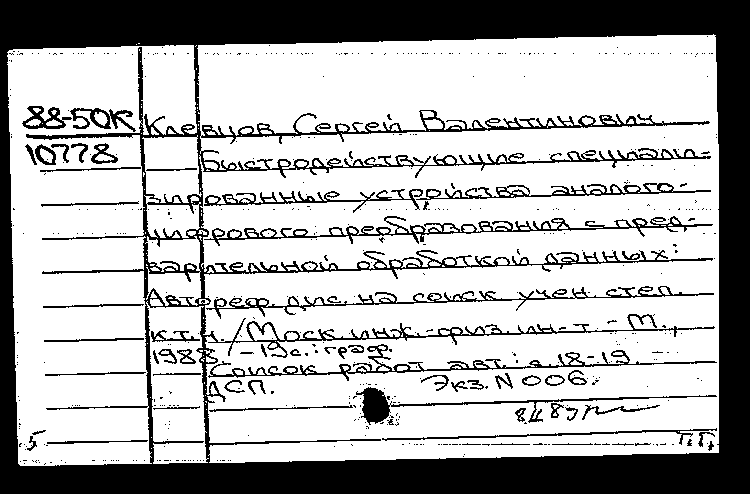 88-50К Клевцов, Сергей Валентинович.
10778 Быстродействующие специали-
зированные устройства аналого-
цифрового преобразования с пред-
варительной обработкой данных:
Автореф. дис. на соиск учен. степ.
к.т.н. /Моск. инж.-физ. ин-т - М.,
1988. - 19 с. : граф.
Список работ авт.: с. 18-19. -
ДСП. Экз. N 006.
5 Т.П.